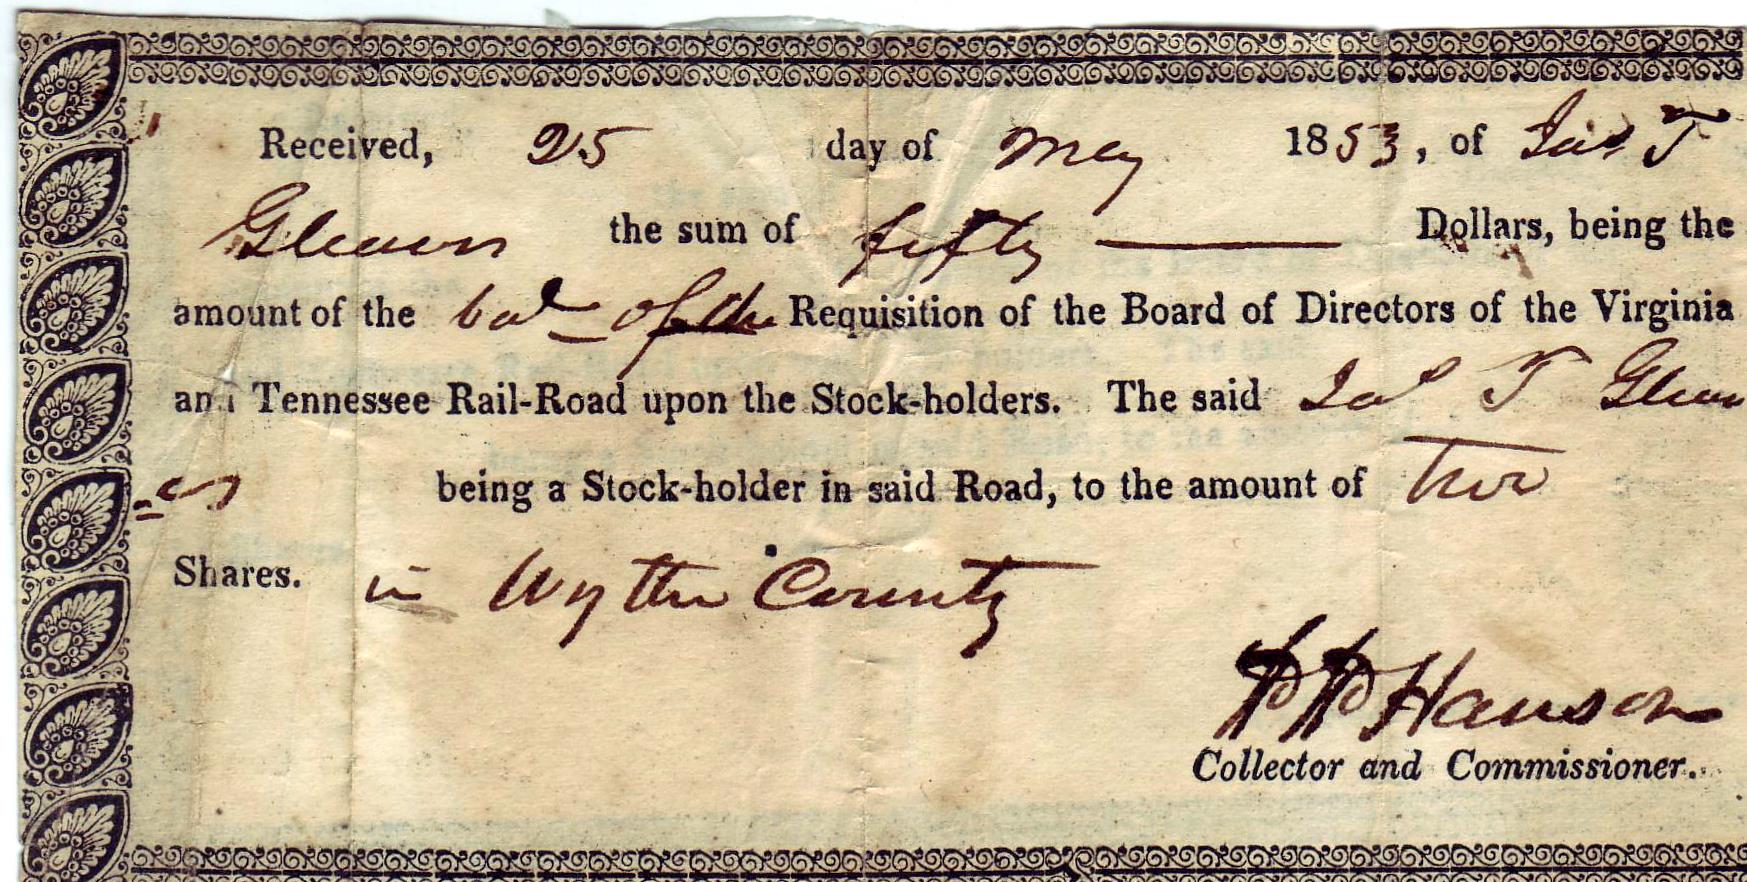 Received, 25 day of May 1853, of Jas T
Gleaves the sum of fifty Dollars, being the
amount of the bal of the Requisition of the Board of Directors of the Virginia
and Tennessee Rail-Road upon the Stock-holders. The said Jas T Gleav
=es being a Stock-holder in said Road, to the amount of two
Shares. in Wythe County
Hanson
Collector and Commissioner.